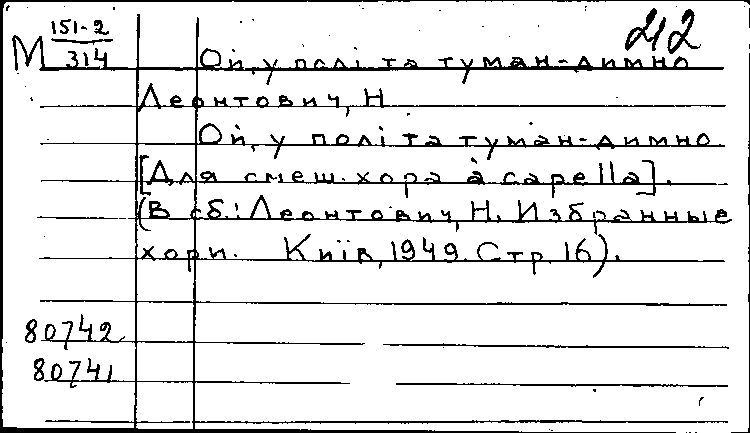 М 151-2/314
212
Ой, у полі та туман-димно
Леонтович, Н
Ой, у полі та туман-димно
[Для смеш. хора à capella].
(В сб.: Леонтович, Н. Избранные
хори. Київ, 1949. Стр. 16).
80742
80741